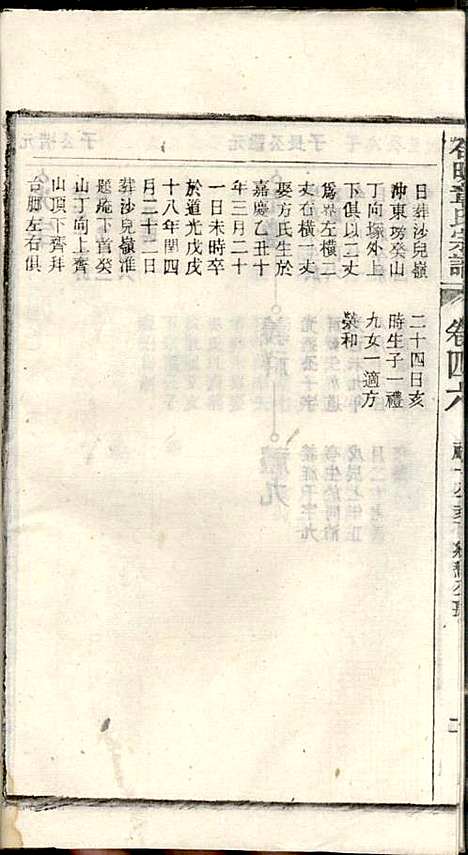 日葬沙兒嶺
沖東塝癸山
丁向塚外上
下俱以二丈
為界左橫二
丈右橫一丈
娶方氏生於
嘉慶乙丑十
年三月二十
一日未時卒
於道光戊戌
十八年閏四
月二十二日
葬沙兒嶺淮
題菴下首癸
山丁向上齊
山頂下齊拜
台脚左右俱
二十四日亥
時生子一禮
九女一適方
榮和
章氏宗譜
卷四六